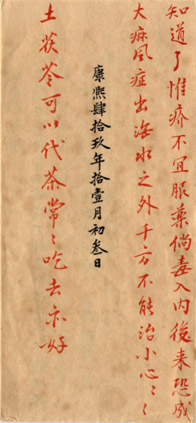 知道了惟疥不宜服藥倘毒入內後來恐成
大麻風症出海水之外千方不能治小心〻〻
康熙肆拾玖年拾壹月初叁日
土茯苓可以代茶常〻吃去亦好